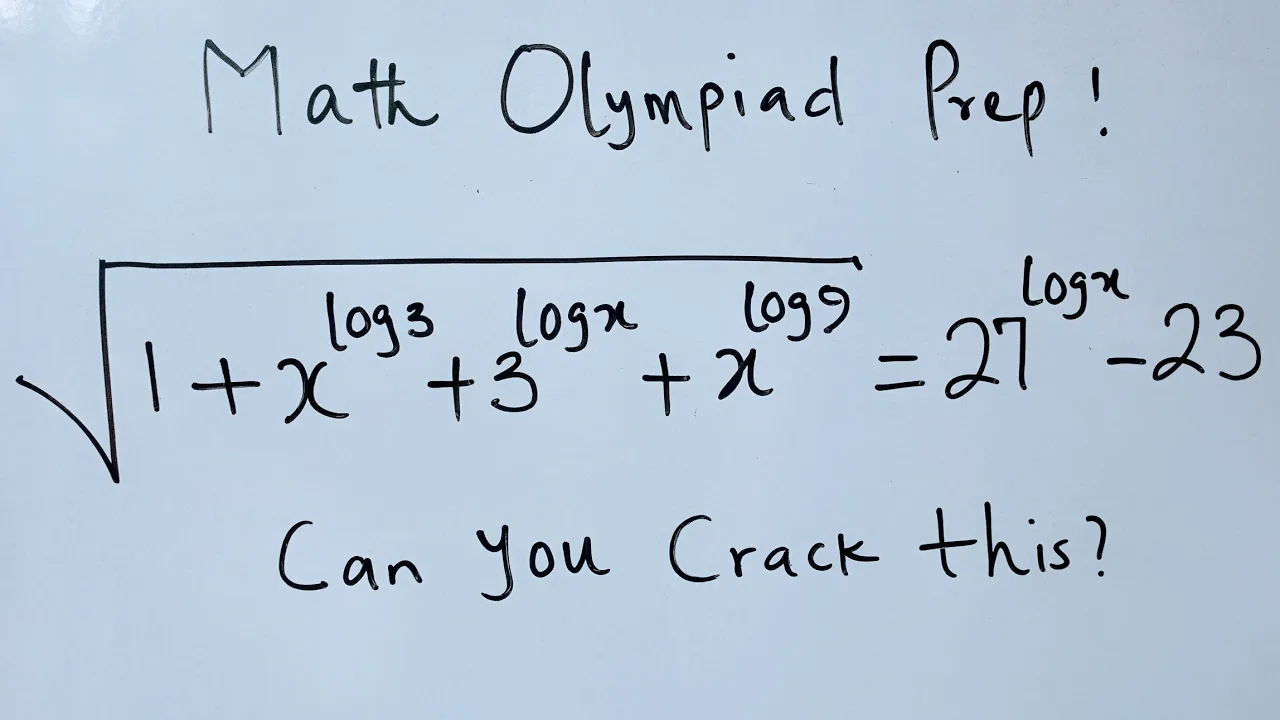 Math Olympiad Prep !
√(1 + x^log3 + 3^logx + x^log9) = 27^logx - 23
Can you Crack this?